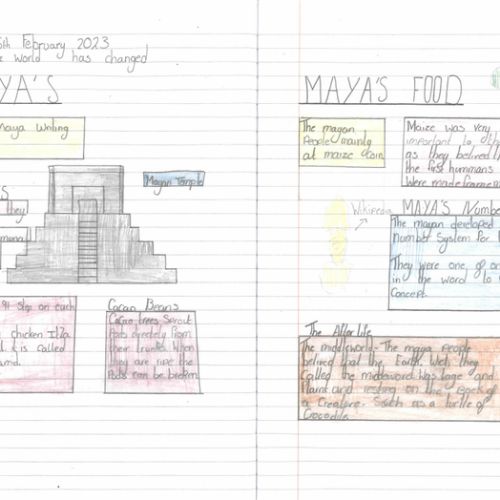 5th February 2023
World has changed
YA'S
Maya Writing
Mayan Temple
S
they
91 step on each
chicken Itza
is called
Cacao Beans
Cacao trees Sprout
Pods directly from
their trunks. When
they are ripe the
Pods can be broken
MAYA'S FOOD
The mayan
People mainly
at maize
Maize was very
important to th
as they belived
the first hummans
Were made from
Wikipedia
MAYA'S Number
The mayan developed
number System for
They were one of
in the word to
Concept.
The After life
The middleworld - The maya people
belived that the Earth, Wich they
Called the middleword was large and
Flat and resting on the back of
a Creature. Such as a turtle of
Crocodile.